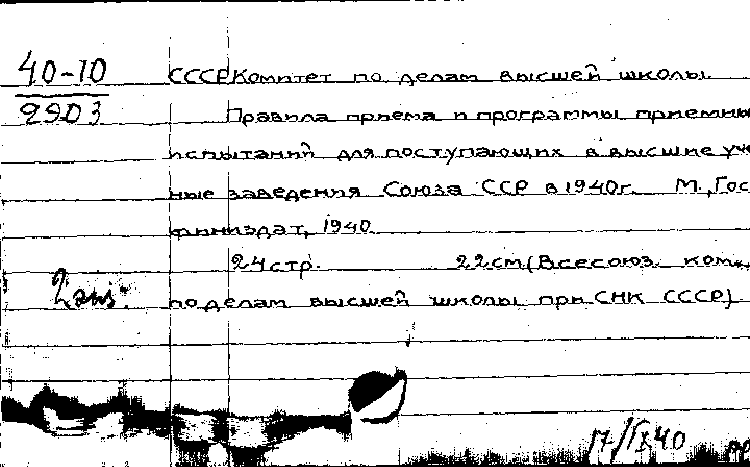 40-10 СССР Комитет по делам высшей школы.
2903 Правила приема и программы приемны
испытаний для поступающих в высшие уче
ные заведения Союза ССР в 1940г. М., Гос
финиздат, 1940
24 стр. 22 см. (Всесоюз. ком.
2 экз. по делам высшей школы при СНК СССР)
17/IX 40